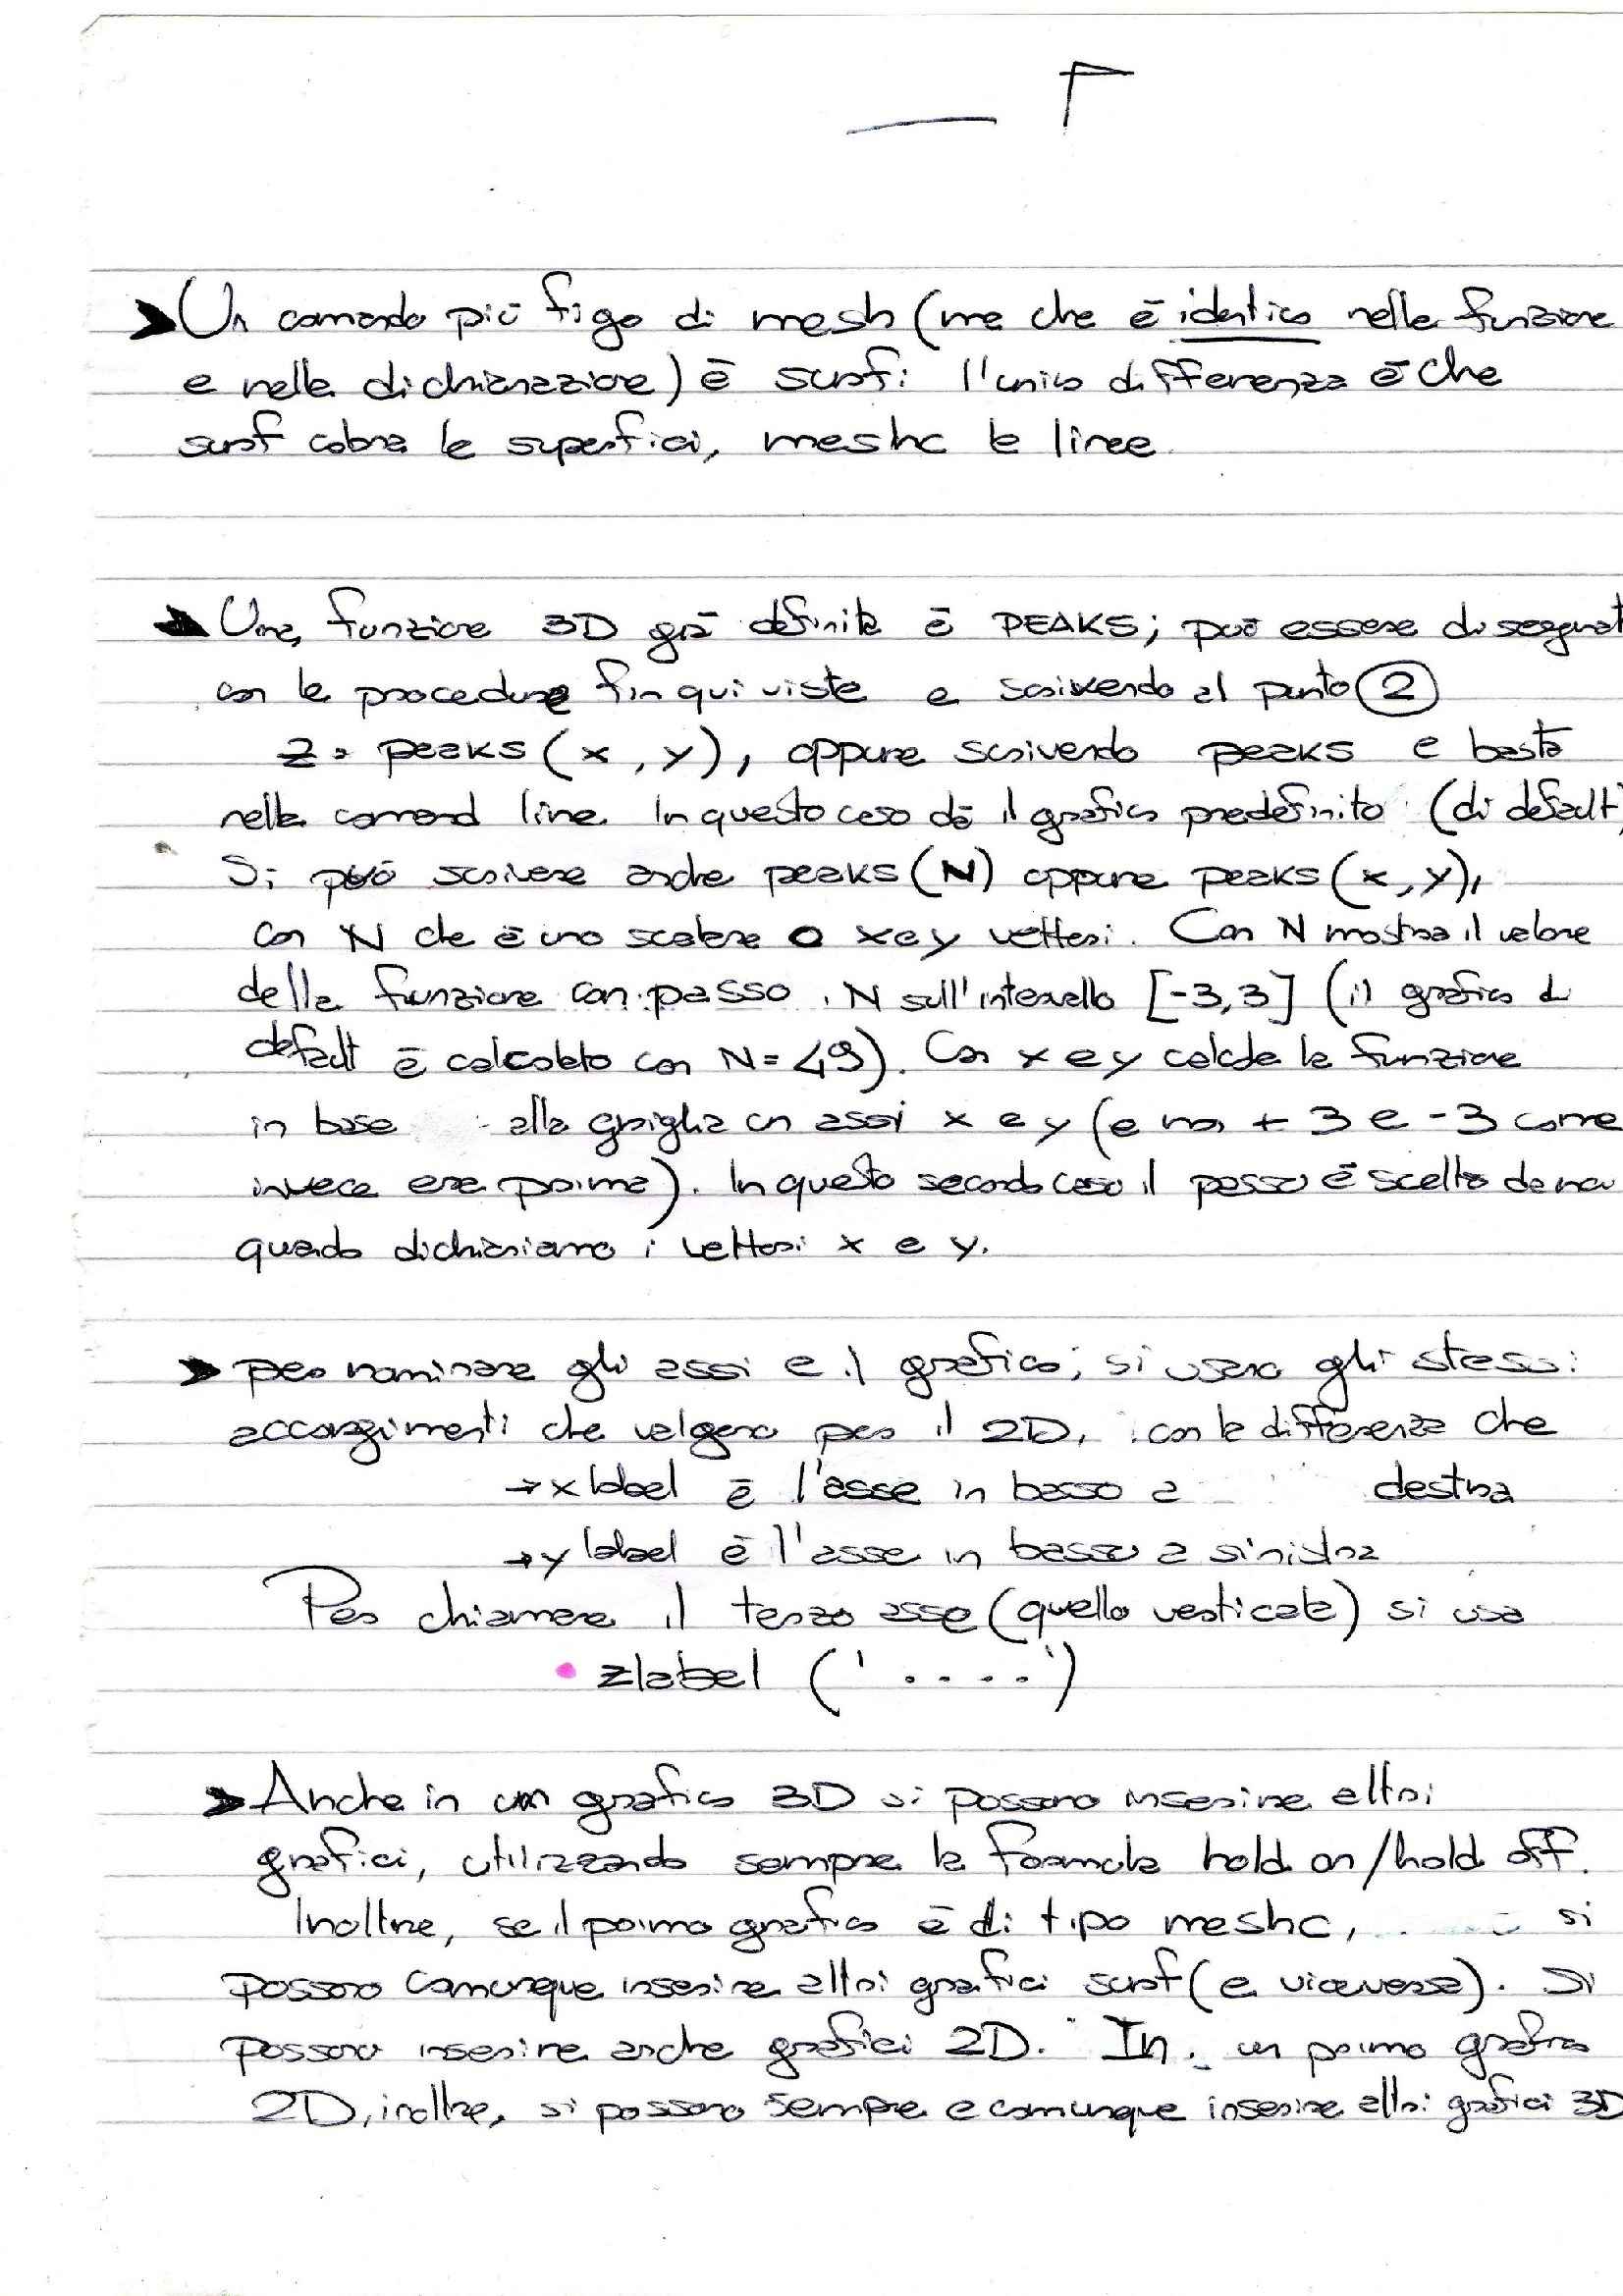 ➤ Un comando più figo di mesh (ma che è identico nella funzione
e nella dichiarazione) è surf: l'unica differenza è che
surf colora le superfici, meshc le linee.
➤ Una funzione 3D già definita è PEAKS; può essere disegnat
con le procedure fin qui viste e scrivendo al punto ②
z = peaks (x, y), oppure scrivendo peaks e basta
nella command line. In questo caso dà il grafico predefinito (di default)
Si può scrivere anche peaks (N) oppure peaks (x, y),
con N che è uno scalare o x e y vettori. Con N mostra il valore
della funzione con passo N sull'intervallo [-3,3] (il grafico di
default è calcolato con N = 49). Con x e y calcola la funzione
in base alla griglia con assi x e y (e non + 3 e - 3 come
invece era prima). In questo secondo caso il passo è scelto da noi
quando dichiariamo i vettori x e y.
➤ per nominare gli assi e il grafico, si usano gli stessi
accorgimenti che valgono per il 2D, con la differenza che
→ xlabel è l'asse in basso a destra
→ ylabel è l'asse in basso a sinistra
Per chiamare il terzo asse (quello verticale) si usa
• zlabel ('....')
➤ Anche in un grafico 3D si possono inserire altri
grafici, utilizzando sempre la formula hold on/hold off.
Inoltre, se il primo grafico è di tipo meshc, si
possono comunque inserire altri grafici surf (e viceversa). Si
possono inserire anche grafici 2D. In un primo grafico
2D, inoltre, si possono sempre e comunque inserire altri grafici 3D